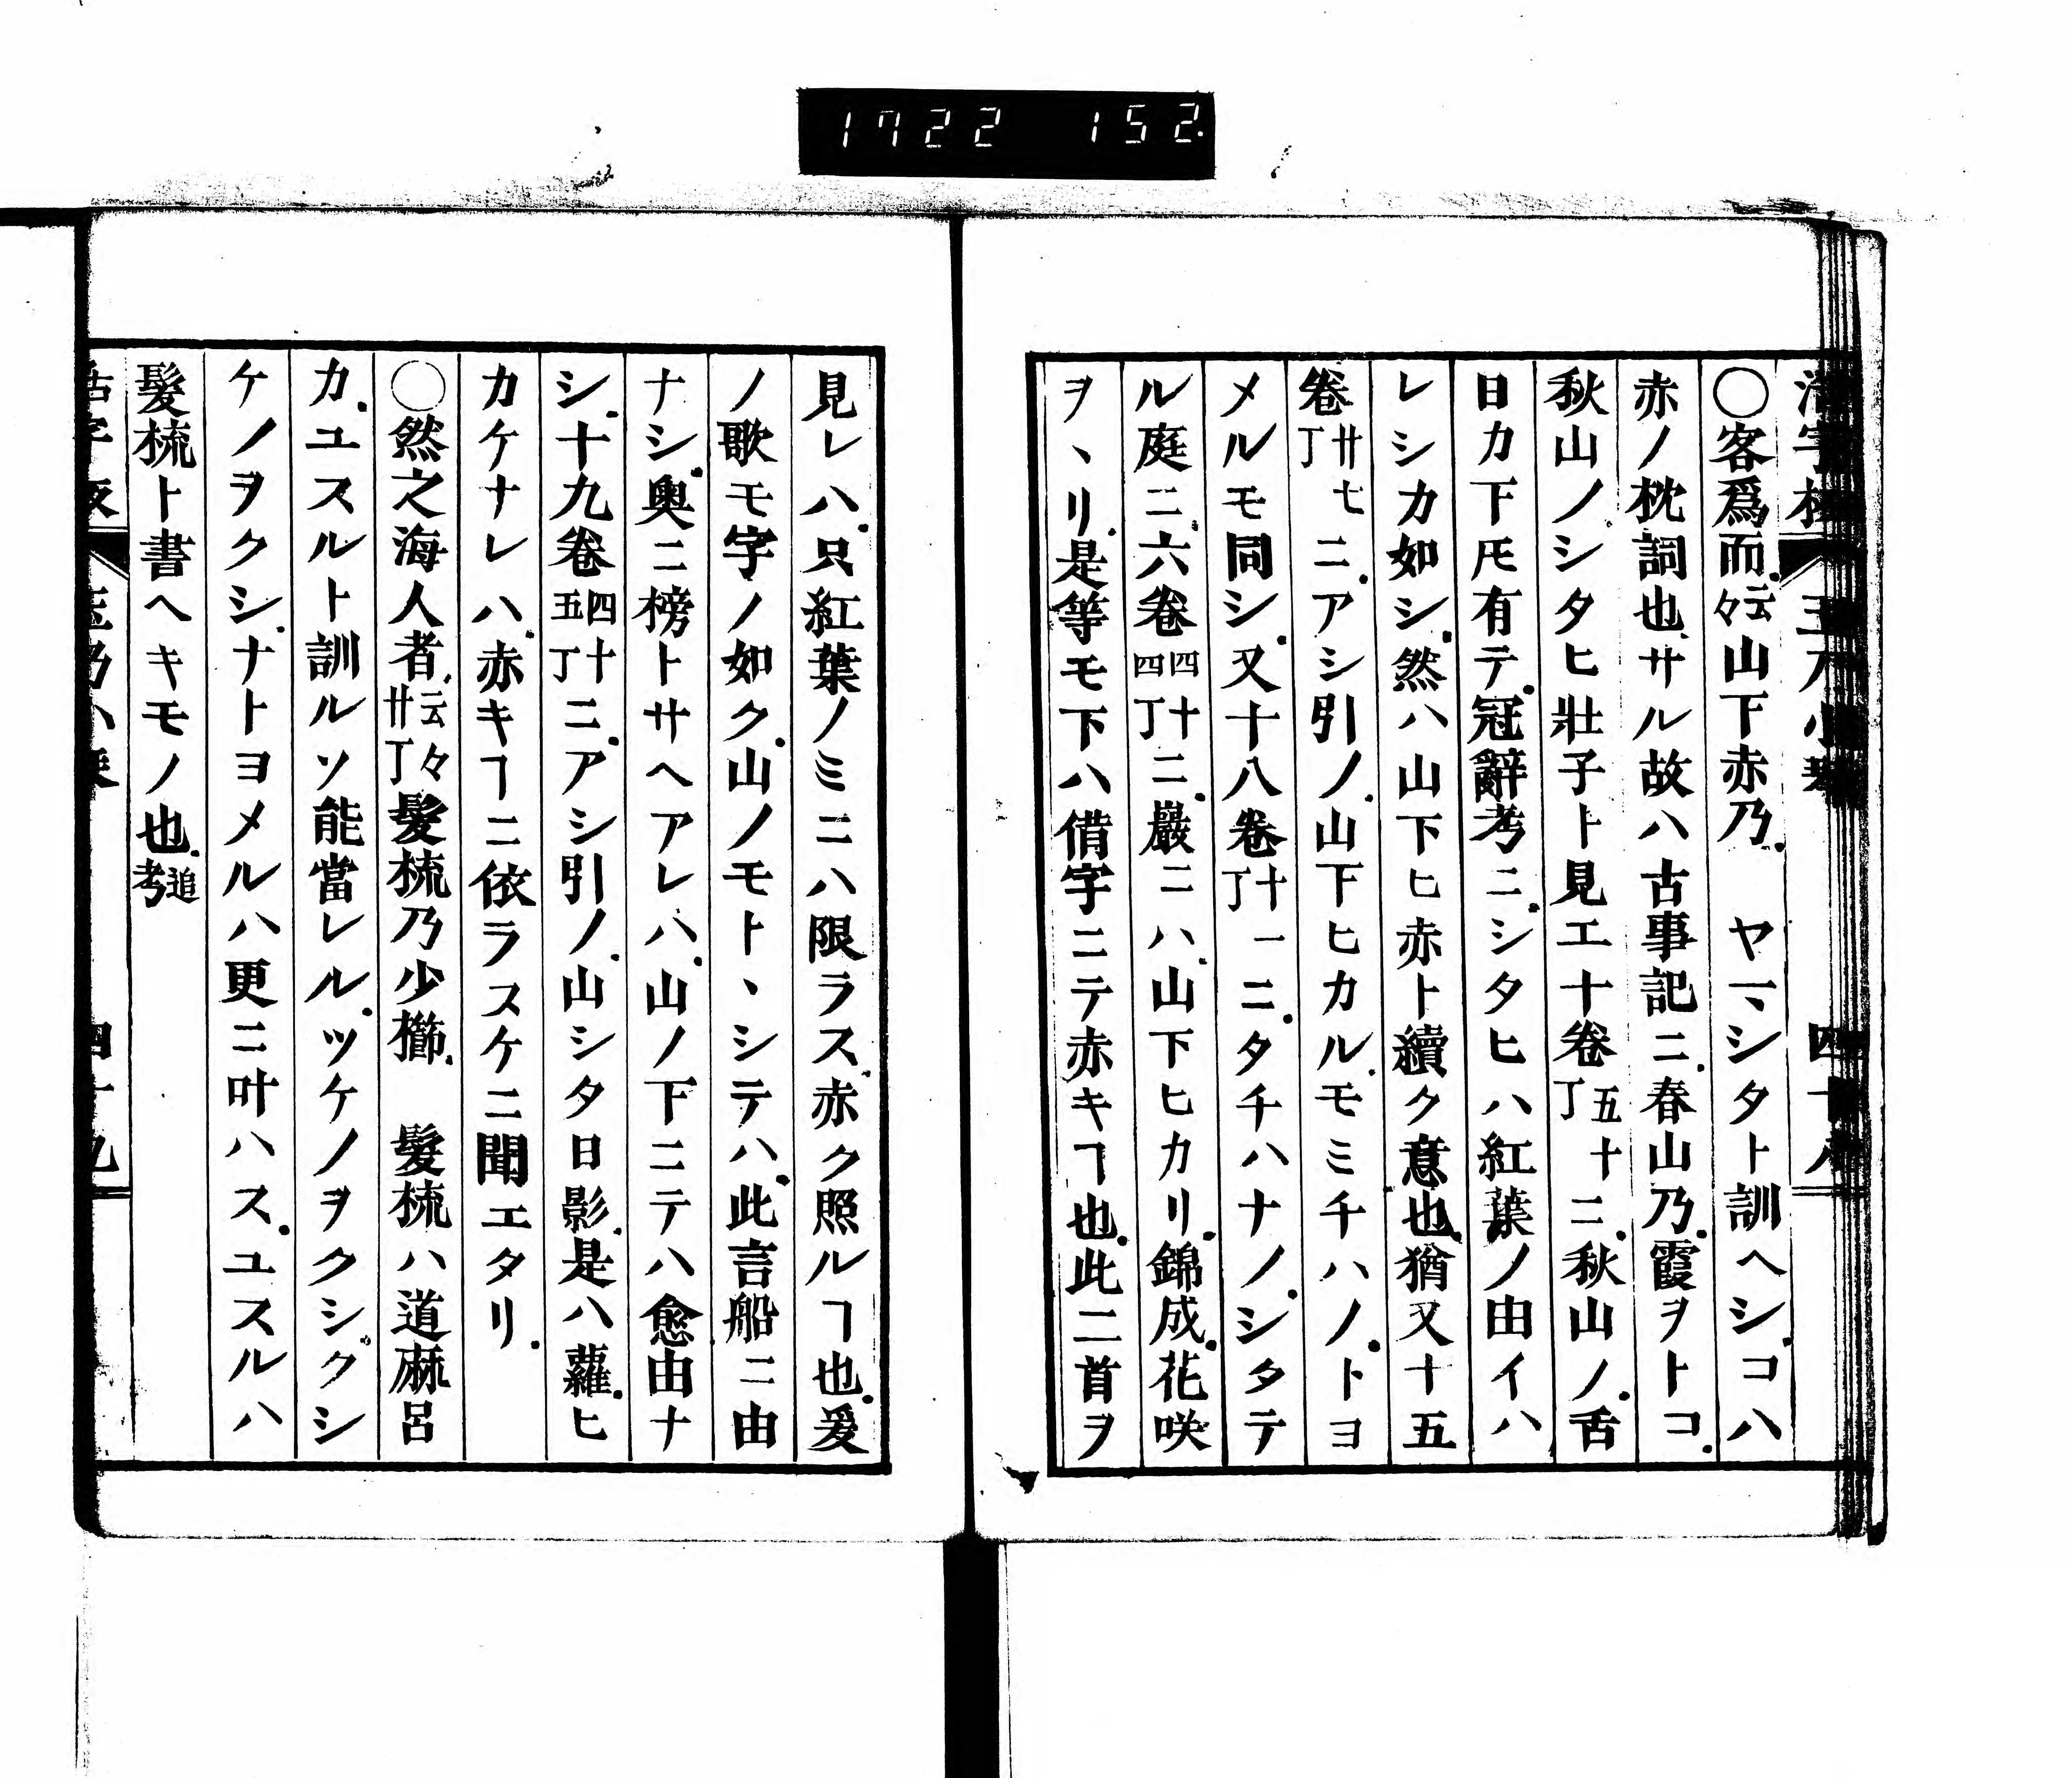 1722 152
○客爲而云々山下赤乃 ヤマシタト訓ヘシコハ
赤ノ枕詞也サル故ハ古事記ニ春山乃霞ヲトコ
秋山ノシタヒ壯子ト見エ十卷五十丁ニ秋山ノ舌
日カ下𪜈有テ冠辭考ニシタヒハ紅葉ノ由イハ
レシカ如シ然ハ山下ヒ赤ト續ク意也猶又十五
卷廿七丁ニアシ引ノ山下ヒカルモミチハノトヨ
メルモ同シ又十八卷十一丁ニタチハナノシタテ
ル庭ニ六卷四十四丁ニ巖ニハ山下ヒカリ錦成花咲
ヲヽリ是等モ下ハ借字ニテ赤キヿ也此二首ヲ
見レハ只紅葉ノミニハ限ラス赤ク照ルヿ也爰
ノ歌モ字ノ如ク山ノモトヽシテハ此言船ニ由
ナシ奥ニ榜トサヘアレハ山ノ下ニテハ愈由ナ
シ十九卷四十五丁ニアシ引ノ山シタ日影是ハ蘿ヒ
カケナレハ赤キヿニ依ラスケニ聞エタリ
○然之海人者云々廿丁髮梳乃少櫛 髮梳ハ道麻呂
カユスルト訓ルソ能當レルツケノヲクシクシ
ケノヲクシナトヨメルハ更ニ叶ハスユスルハ
髮梳ト書ヘキモノ也追考